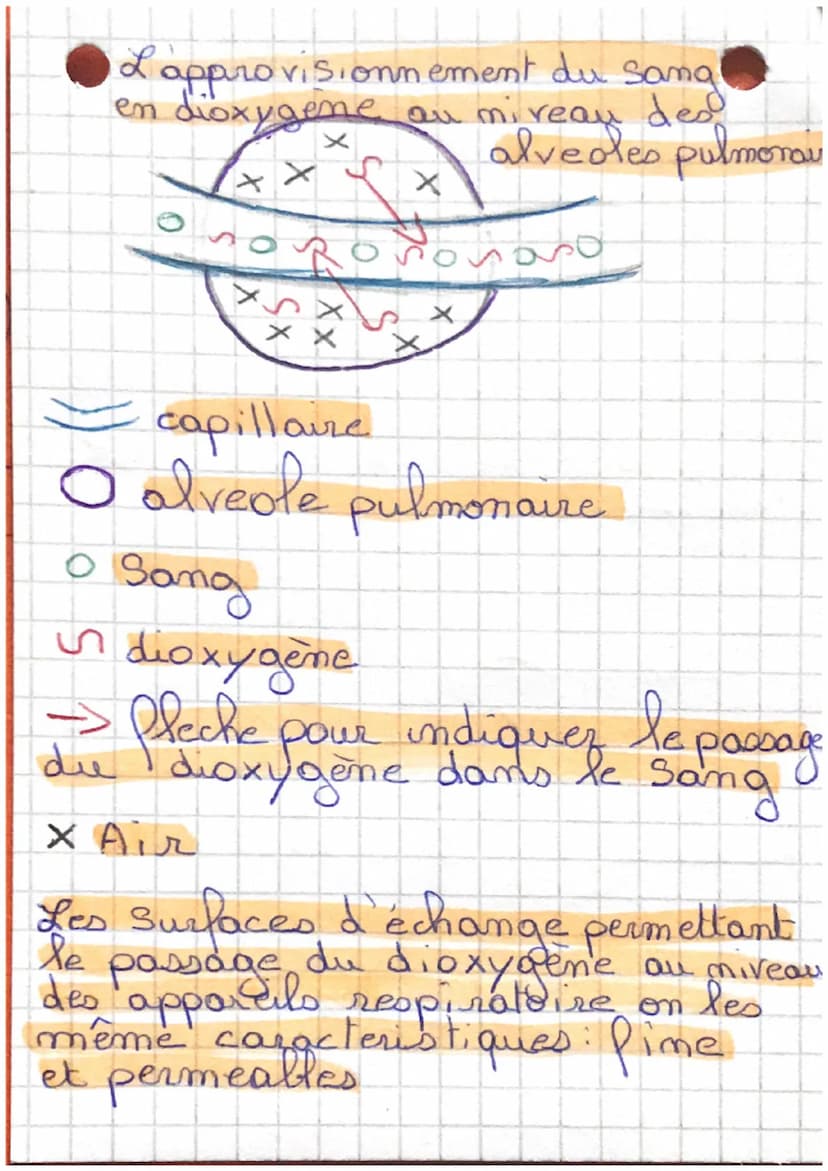 L'approvisionnement du sang
en dioxygène au niveau des
alveoles pulmonair
capillaire
alveole pulmonaire
Sang
dioxygène
fleche pour indiquer le passage
du dioxygène dans le sang
Air
Les surfaces d'échange permettant
le passage du dioxygène au niveau
des appareils respiratoire on les
même caracteristiques: fine
et permeables